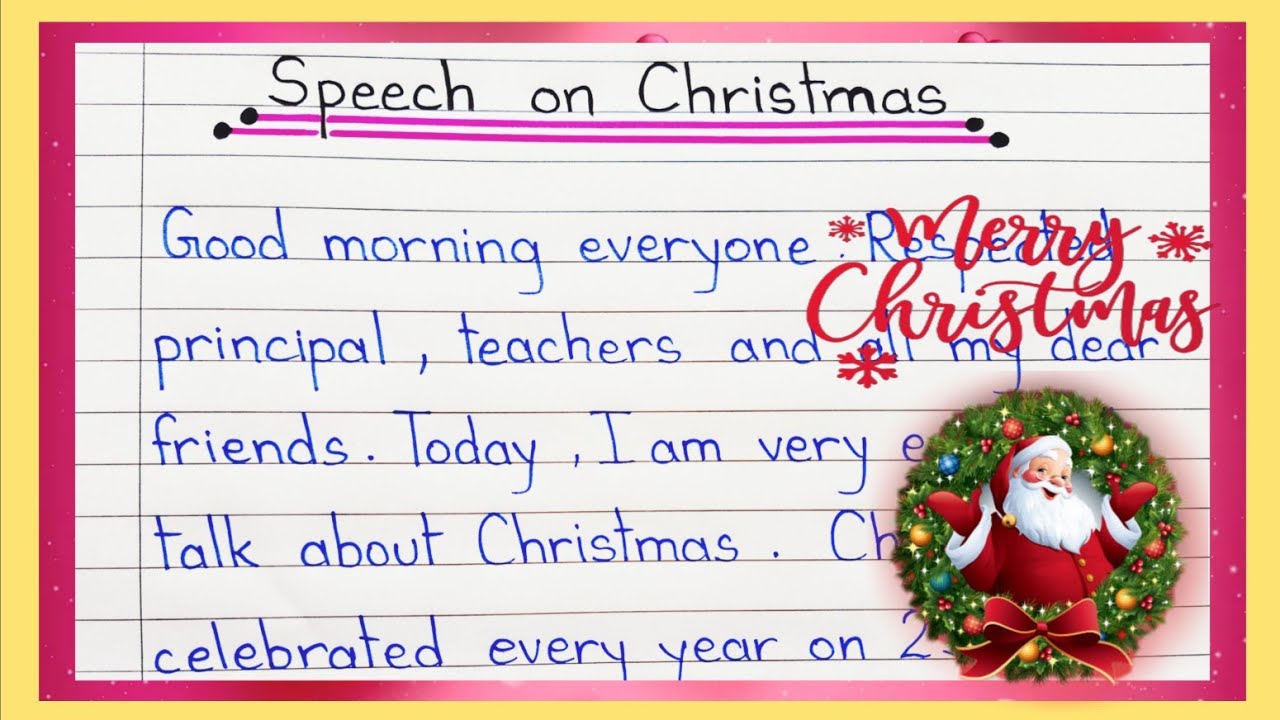 Speech on Christmas
Good morning everyone. Respected
principal, teachers and all my dear
friends. Today, I am very
talk about Christmas.
celebrated every year on
Merry
Christmas